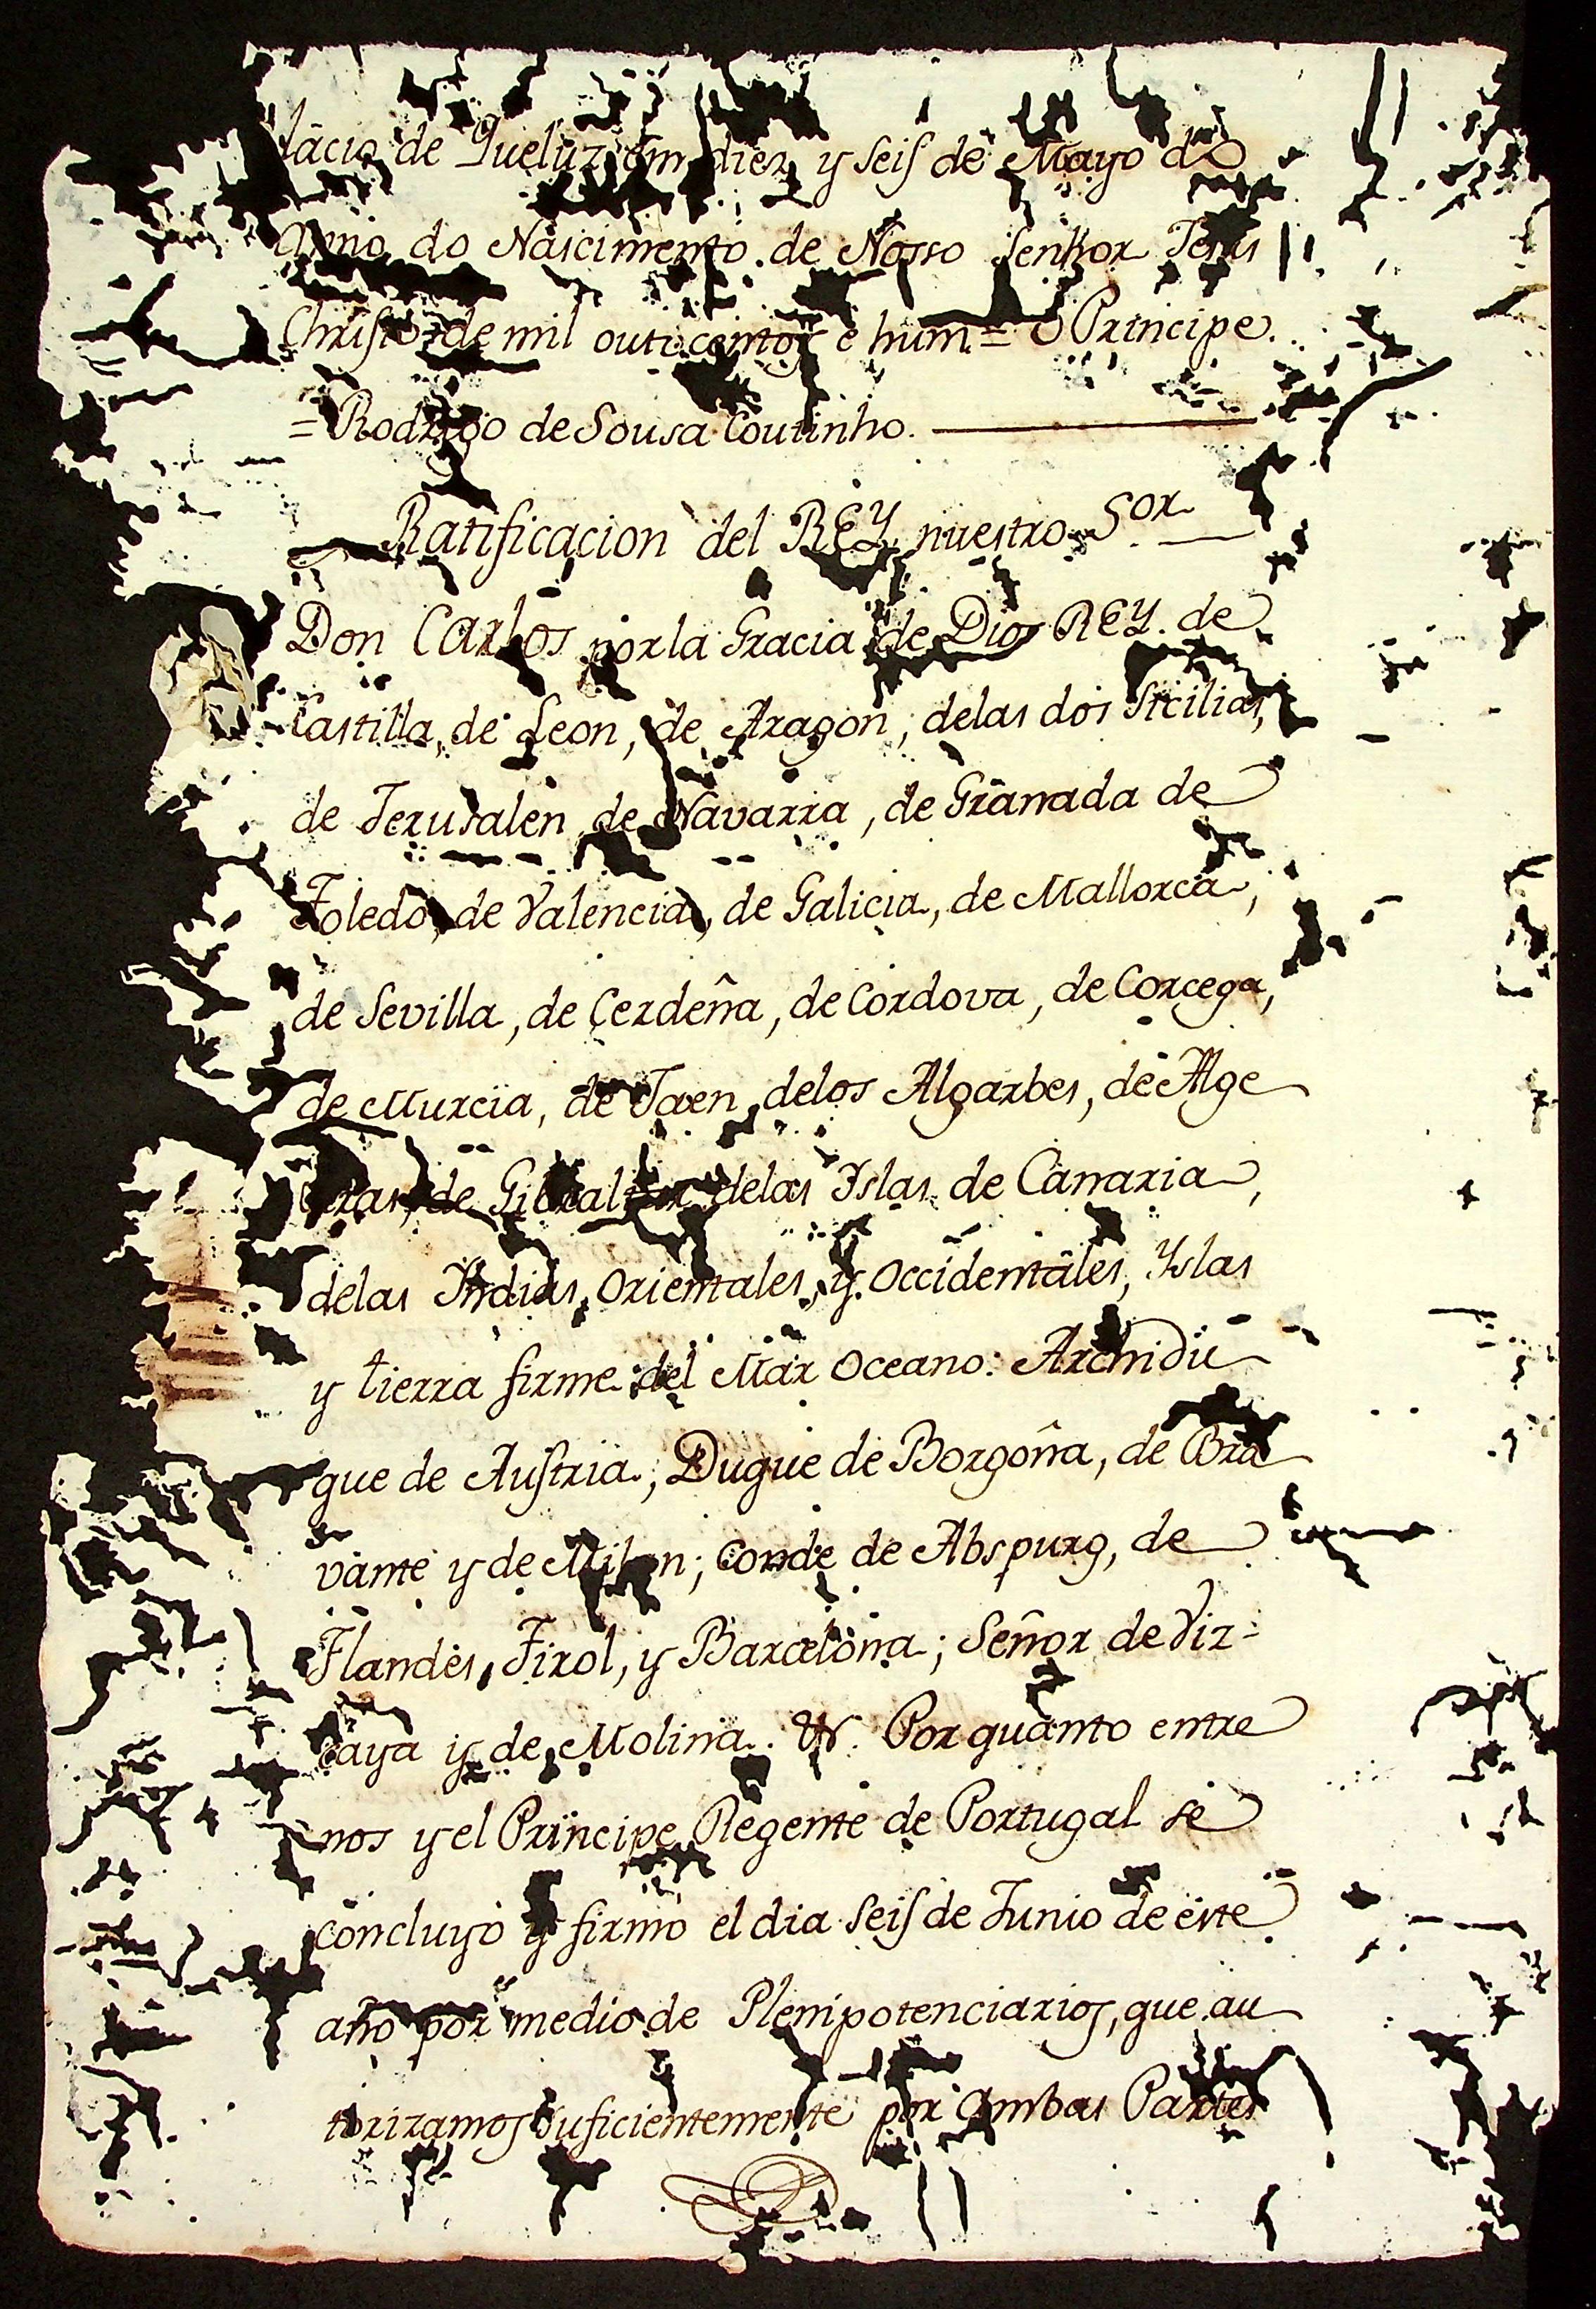 lacio de Queluz em diez y seis de Mayo do
Anno do Nascimento de Nosso Senhor Jesus
Christo de mil outocentos e hum = O Principe.
= Rodrigo de Sousa Coutinho.
Ratificacion del REY nuestro Sor
Don Carlos por la Gracia de Dios REY de
Castilla, de Leon, de Aragon, delas dos Sicilias,
de Jerusalen, de Navarra, de Granada de
Toledo, de Valencia, de Galicia, de Mallorca,
de Sevilla, de Cerdeña, de Cordova, de Corcega,
de Murcia, de Jaen, delos Algarbes, de Alge
ciras, de Gibraltar delas Yslas de Canaria,
delas Yndias, Orientales, y Occidentales, Yslas
y tierra firme del Mar Oceano: Archidu
que de Austria; Duque de Borgoña, de Bra
vante y de Milan; Conde de Abspurg, de
Flandes, Tirol, y Barcelona; Señor de Viz=
caya y de Molina. &c. Por quanto entre
nos y el Principe Regente de Portugal se
concluyó y firmó el dia seis de Junio de este
año por medio de Plenipotenciarios, que au
torizamos suficientemente por ambas Partes